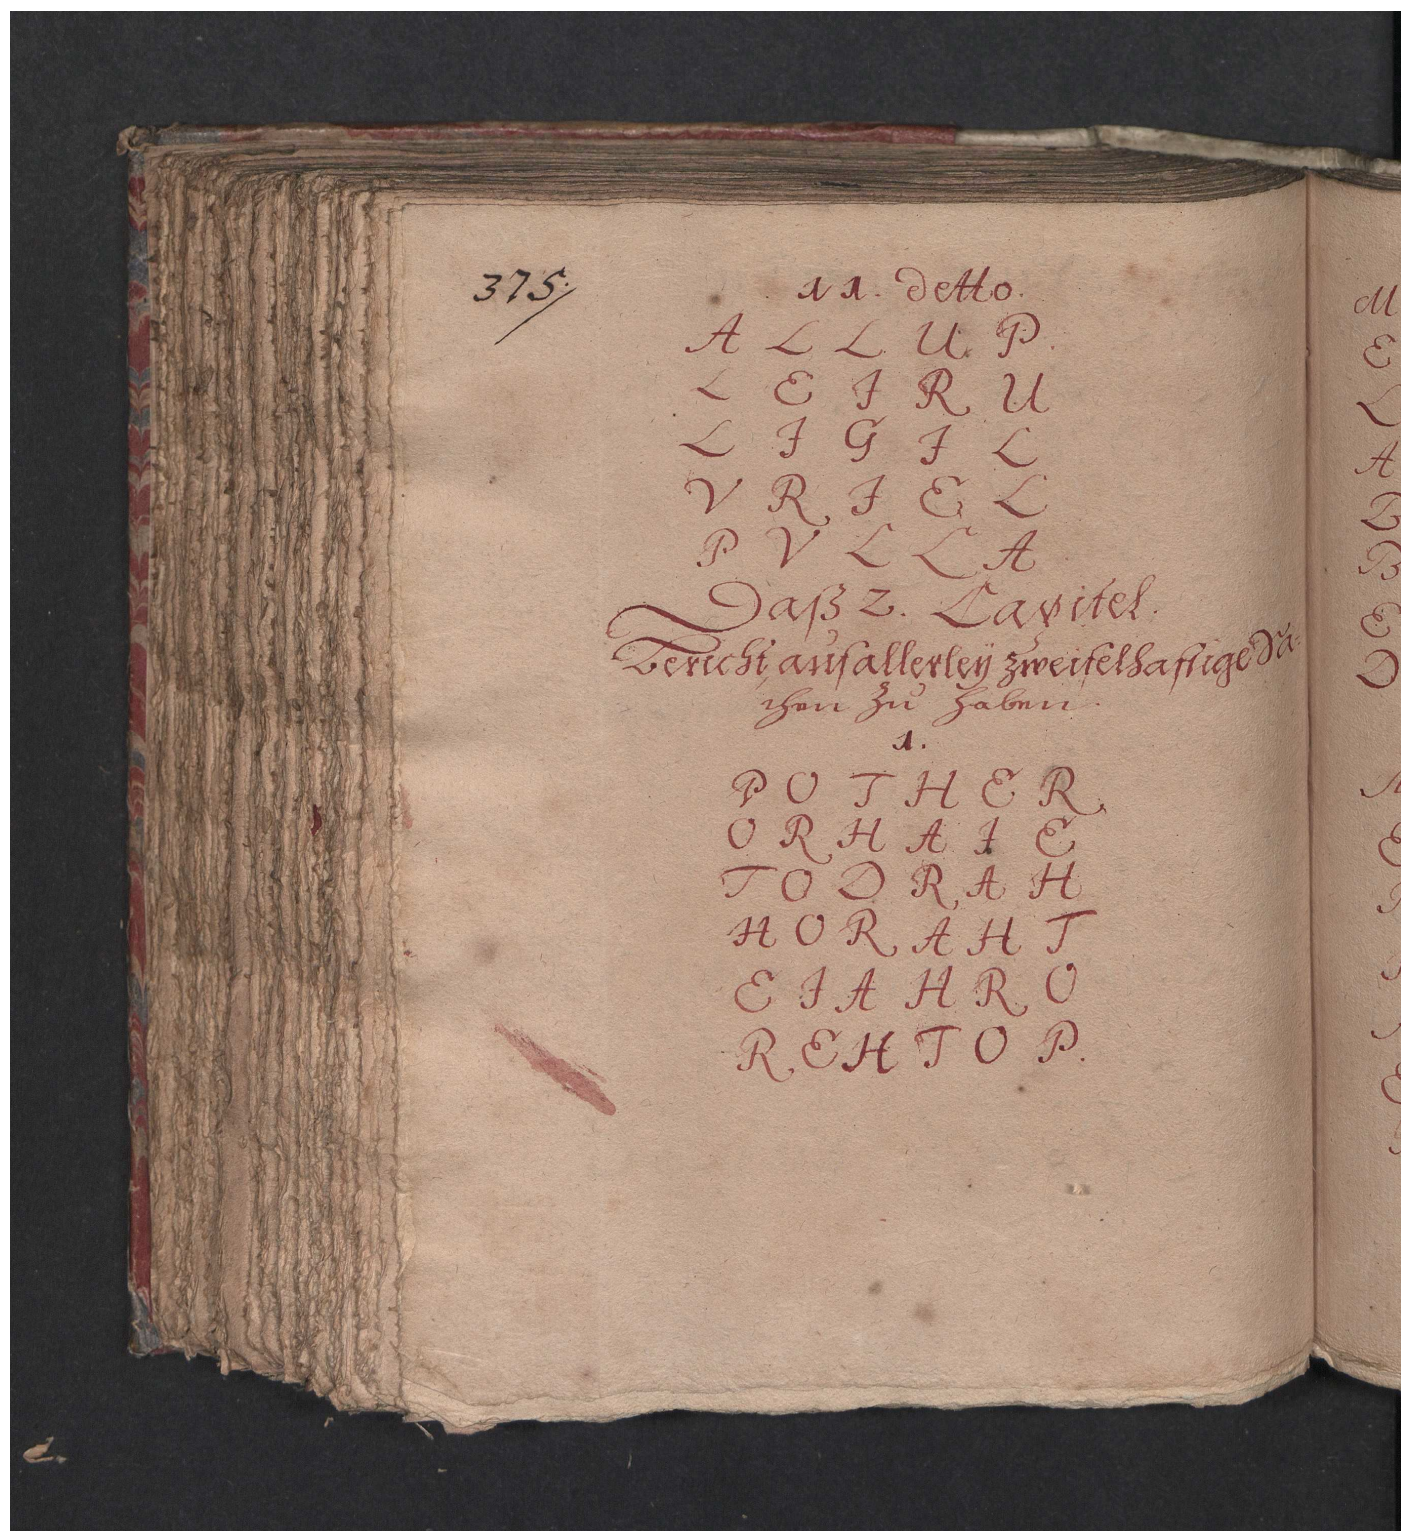 375.
11. detto.
A L L U P.
L E I R U
L I G I L
V R I E L
P V L L A
Daß 2. Capitel.
Bericht auf allerleÿ zweifelhaftige Sa-
chen zu haben.
1.
P O T H E R
O R H A I E
T O D R A H
H O R A H T
E I A H R O
R E H T O P.
M
E
L
A
B
E
D